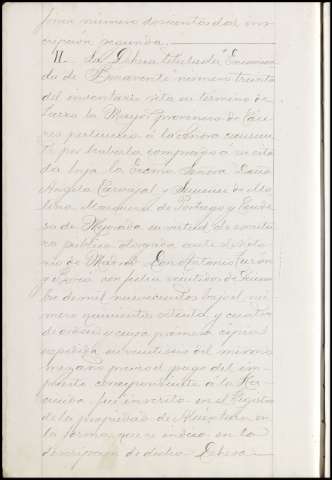 finca número doscientos dos, ins-
cripción segunda.
II. La Dehesa titulada "Encomien-
da de Benavente" número treinta
del inventario sita en término de
la Mayor, provincia de Cáce-
res pertenece á la Señora
te por haberla comprado á su cita-
da hija la Excma Señora Doña
Angela Carvajal y Jimenez de Mo-
lina, Marquesa de Portago y Conde-
sa de Mejorada en virtud de escritu-
ra pública otorgada ante el Nota-
rio de Madrid Don Antonio Turon
y Boscá con fecha veintidos de
de mil novecientos bajo el nú-
mero quinientos setenta y cuatro
de orden y cuya primera copia
expedida en veintiseis del mismo
mes y año previo el pago del im-
puesto correspondiente á la Ha-
cienda fué inscrita en el Registro
de la propiedad de Alcántara en
la forma que se indicó en la
descripción de dicha Dehesa.